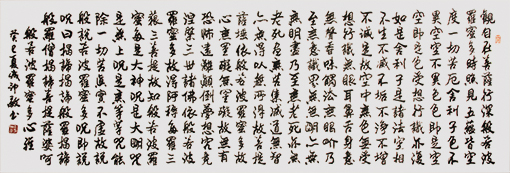 觀自在菩薩行深般若波
羅蜜多時照見五蘊皆空
度一切苦厄舍利子色不
異空空不異色色即是空
空即是色受想行識亦復
如是舍利子是諸法空相
不生不滅不垢不淨不增
不減是故空中無色無受
想行識無眼耳鼻舌身意
無色聲香味觸法無眼界乃
至無意識界無無明亦無
無明盡乃至無老死亦無
老死盡無苦集滅道無智
亦無得以無所得故菩提
薩埵依般若波羅蜜多故
心無罣礙無罣礙故無有
恐怖遠離顛倒夢想究竟
涅槃三世諸佛依般若波
羅蜜多故得阿耨多羅三
藐三菩提故知般若波羅
蜜多是大神咒是大明咒
是無上咒是無等等咒能
除一切苦真實不虛故說
般若波羅蜜多咒即說
咒曰揭諦揭諦波羅揭諦
般羅僧揭諦菩提薩婆呵
般若波羅蜜多心經
癸巳夏